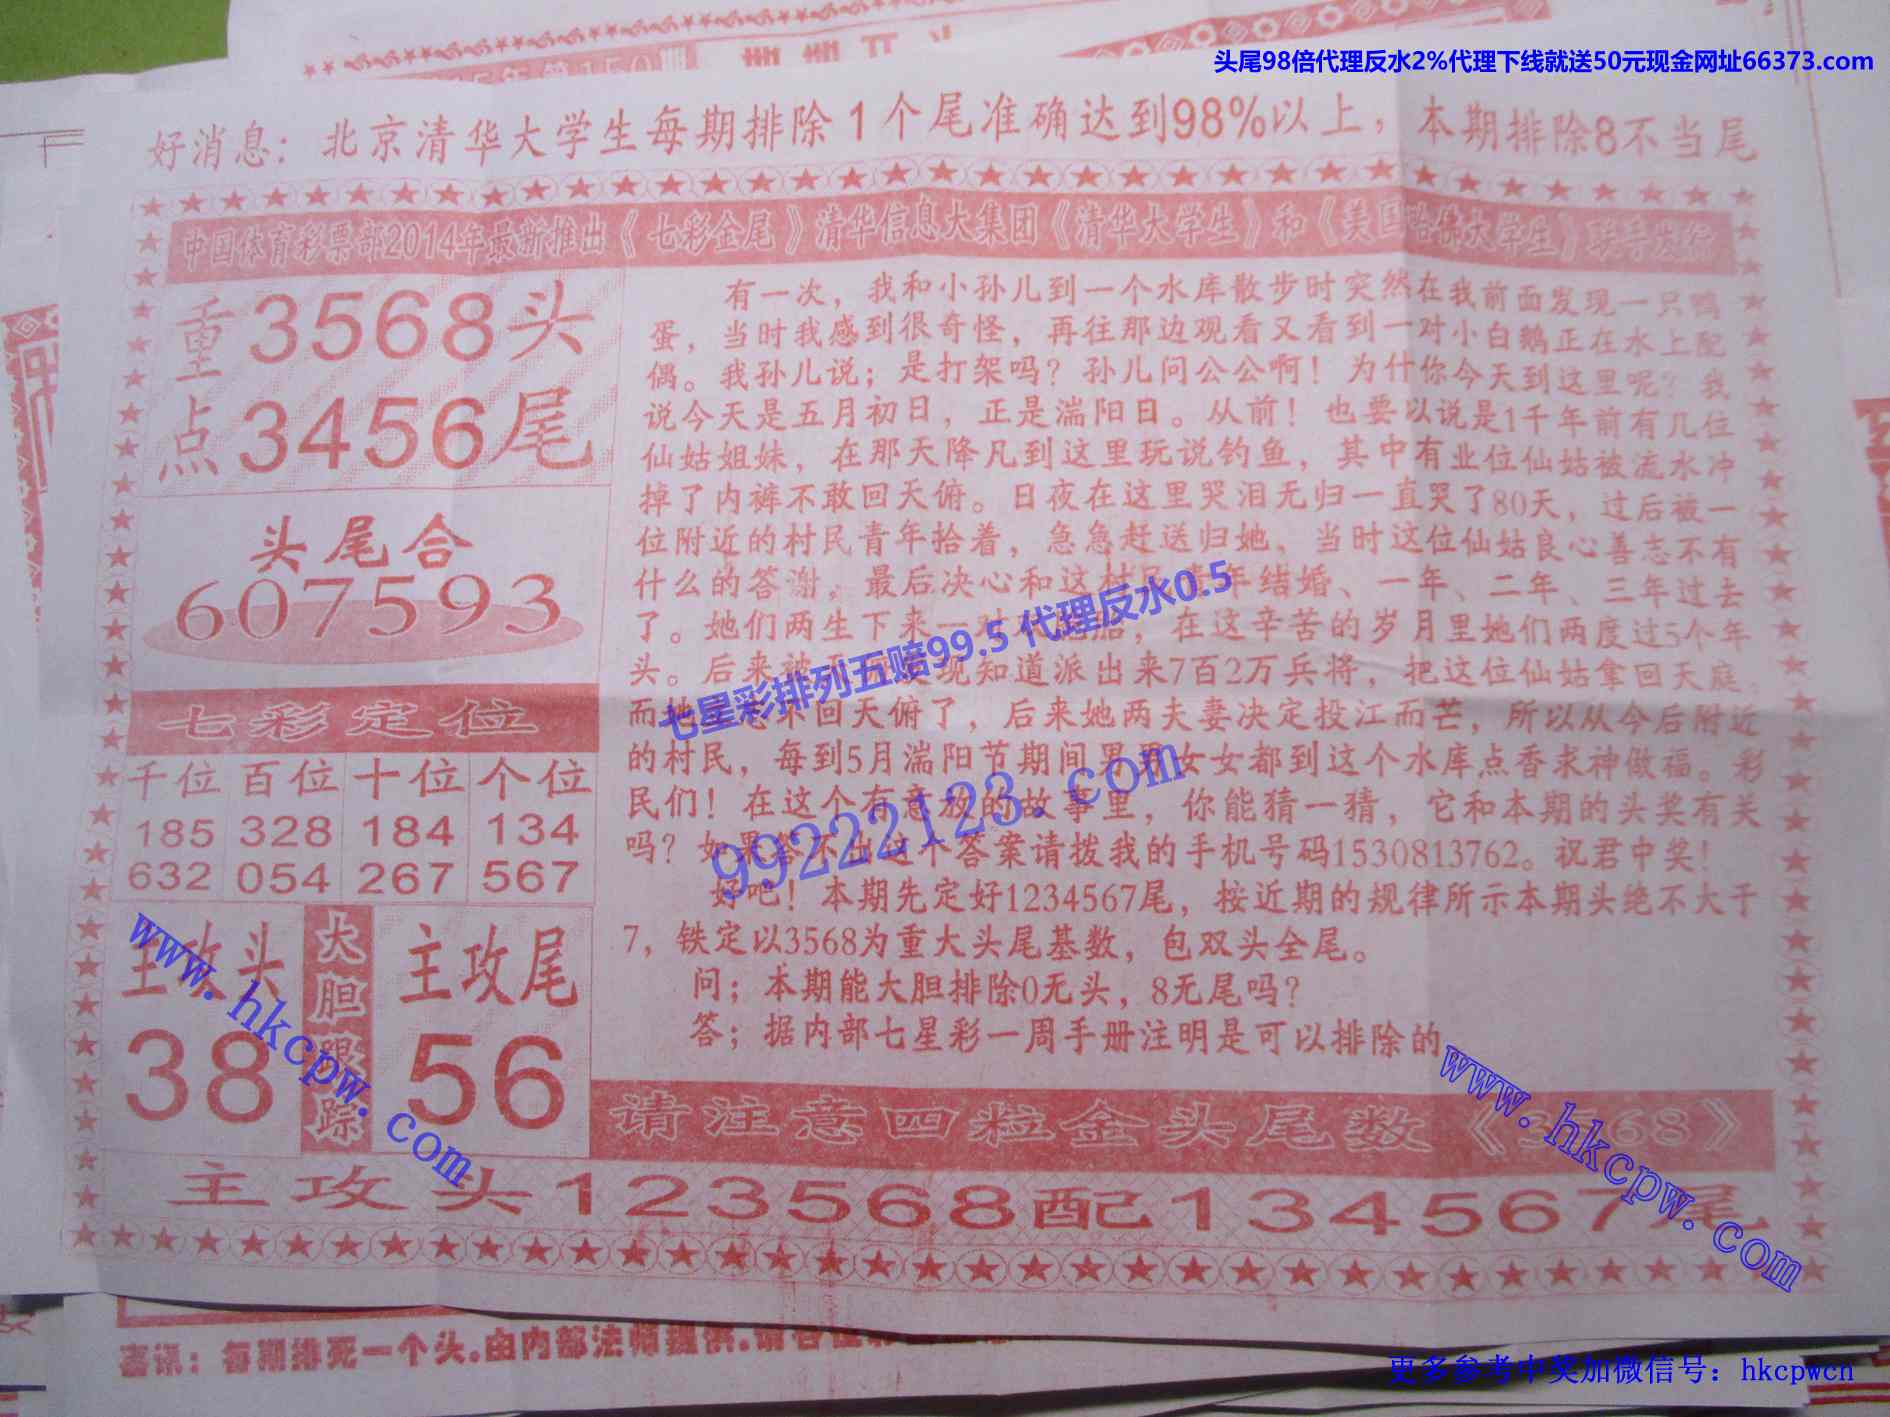 头尾98倍代理反水2%代理下线就送50元现金网址66373.com
好消息：北京清华大学生每期排除1个尾准确达到98%以上，本期排除8不当尾
中国体育彩票部2014年最新推出《七彩金尾》清华信息大集团《清华大学生》和《美国哈佛大学生》联手发行
重点
3568头
3456尾
头尾合
607593
七彩定位
千位 百位 十位 个位
185 328 184 134
632 054 267 567
主攻头
38
大胆跟踪
主攻尾
56
有一次，我和小孙儿到一个水库散步时突然在我前面发现一只鸭
蛋，当时我感到很奇怪，再往那边观看又看到一对小白鹅正在水上配
偶。我孙儿说；是打架吗？孙儿问公公啊！为什你今天到这里呢？我
说今天是五月初日，正是湍阳日。从前！也要以说是1千年前有几位
仙姑姐妹，在那天降凡到这里玩说钓鱼，其中有业位仙姑被流水冲
掉了内裤不敢回天俯。日夜在这里哭泪无归一直哭了80天，过后被一
位附近的村民青年拾着，急急赶送归她，当时这位仙姑良心善志不有
什么的答谢，最后决心和这村民青年结婚、一年、二年、三年过去
了。她们两生下来一，在这辛苦的岁月里她们两度过5个年
头。后来被现知道派出来7百2万兵将，把这位仙姑拿回天庭，
而她不回天俯了，后来她两夫妻决定投江而芒，所以从今后附近
的村民，每到5月湍阳节期间男男女女都到这个水库点香求神做福。彩
民们！在这个有意放的故事里，你能猜一猜，它和本期的头奖有关
吗？如果答不出这个答案请拨我的手机号码1530813762。祝君中奖！
好吧！本期先定好1234567尾，按近期的规律所示本期头绝不大于
7，铁定以3568为重大头尾基数，包双头全尾。
问；本期能大胆排除0无头，8无尾吗？
答；据内部七星彩一周手册注明是可以排除的
请注意四粒金头尾数《3568》
主攻头123568配134567尾
七星彩排列五赔99.5 代理反水0.5
99222123.com
www.hkcpw.com
www.hkcpw.com
喜讯：每期排死一个头.由内部法师提供.请各位
更多参考中奖加微信号：hkcpwcn